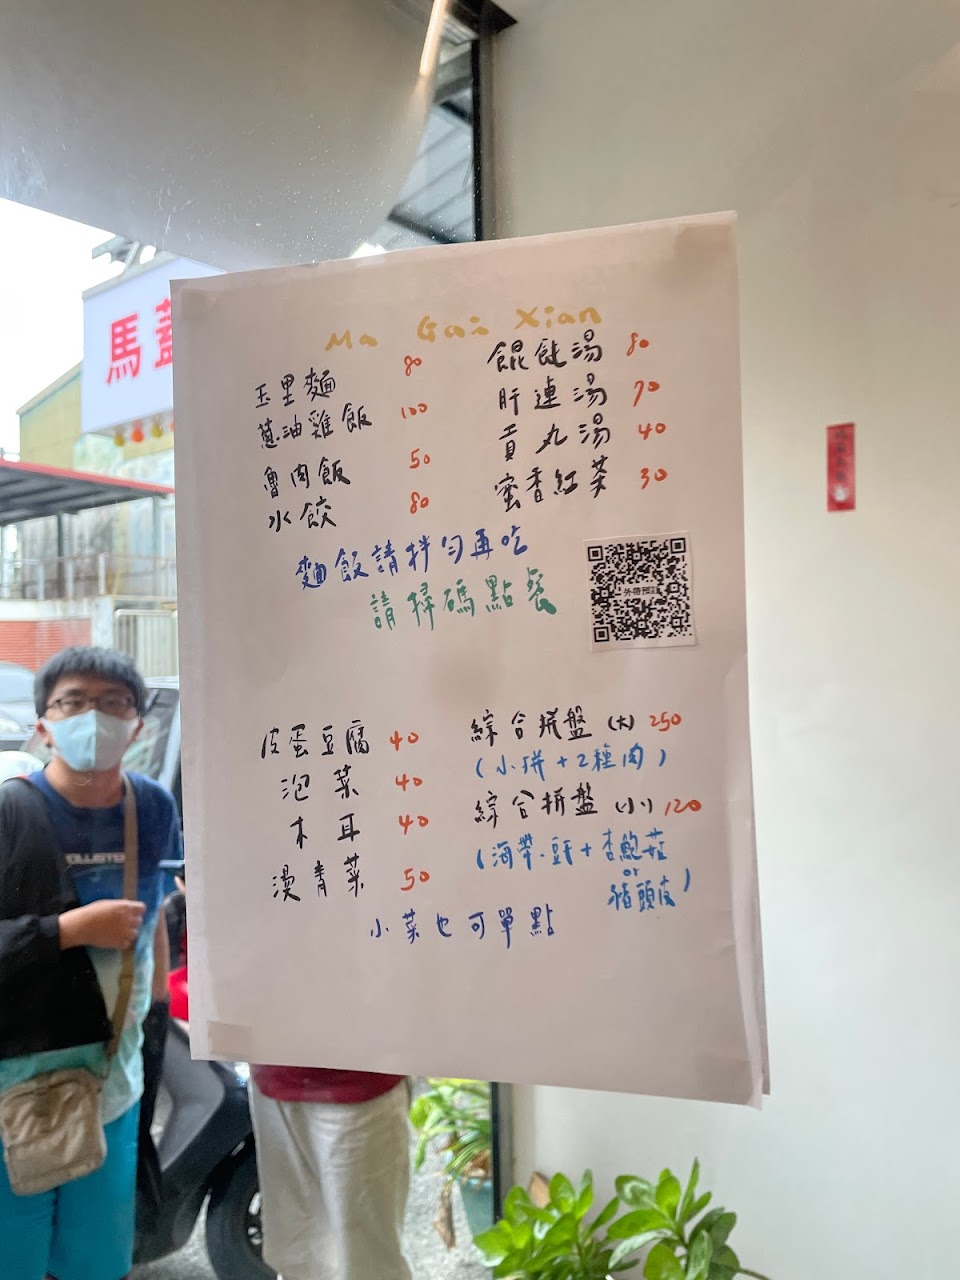 馬蓋
Ma Gai Xian
玉里麵 80
蔥油雞飯 100
魯肉飯 50
水餃 80
餛飩湯 80
肝連湯 70
貢丸湯 40
蜜香紅茶 30
麵飯請拌勻再吃
請掃碼點餐
外帶預訂
皮蛋豆腐 40
泡菜 40
木耳 40
燙青菜 50
綜合拼盤(大) 250
(小拼+2種肉)
綜合拼盤(小) 120
(海帶.豆干+杏鮑菇
or
豬頭皮)
小菜也可單點